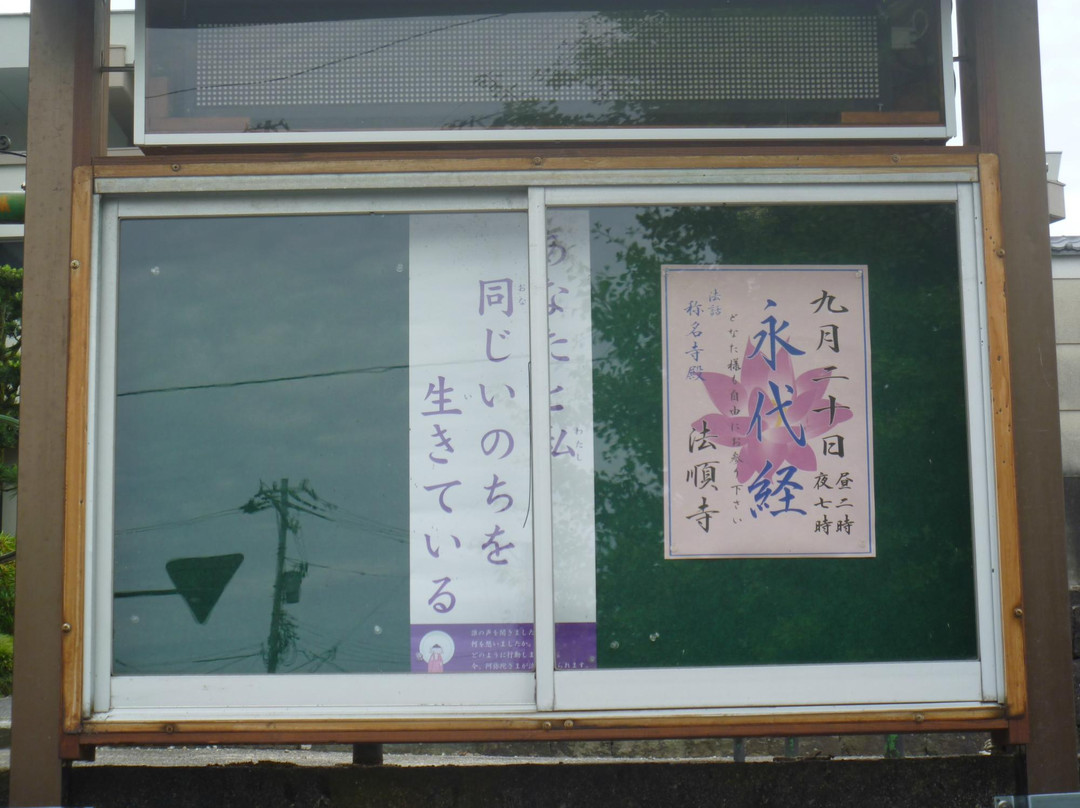 あなたと私
同じいのちを
生きている
九月二十日
昼二時
夜七時
永代経
どなた様も自由にお参り下さい
法話
称名寺殿
法順寺